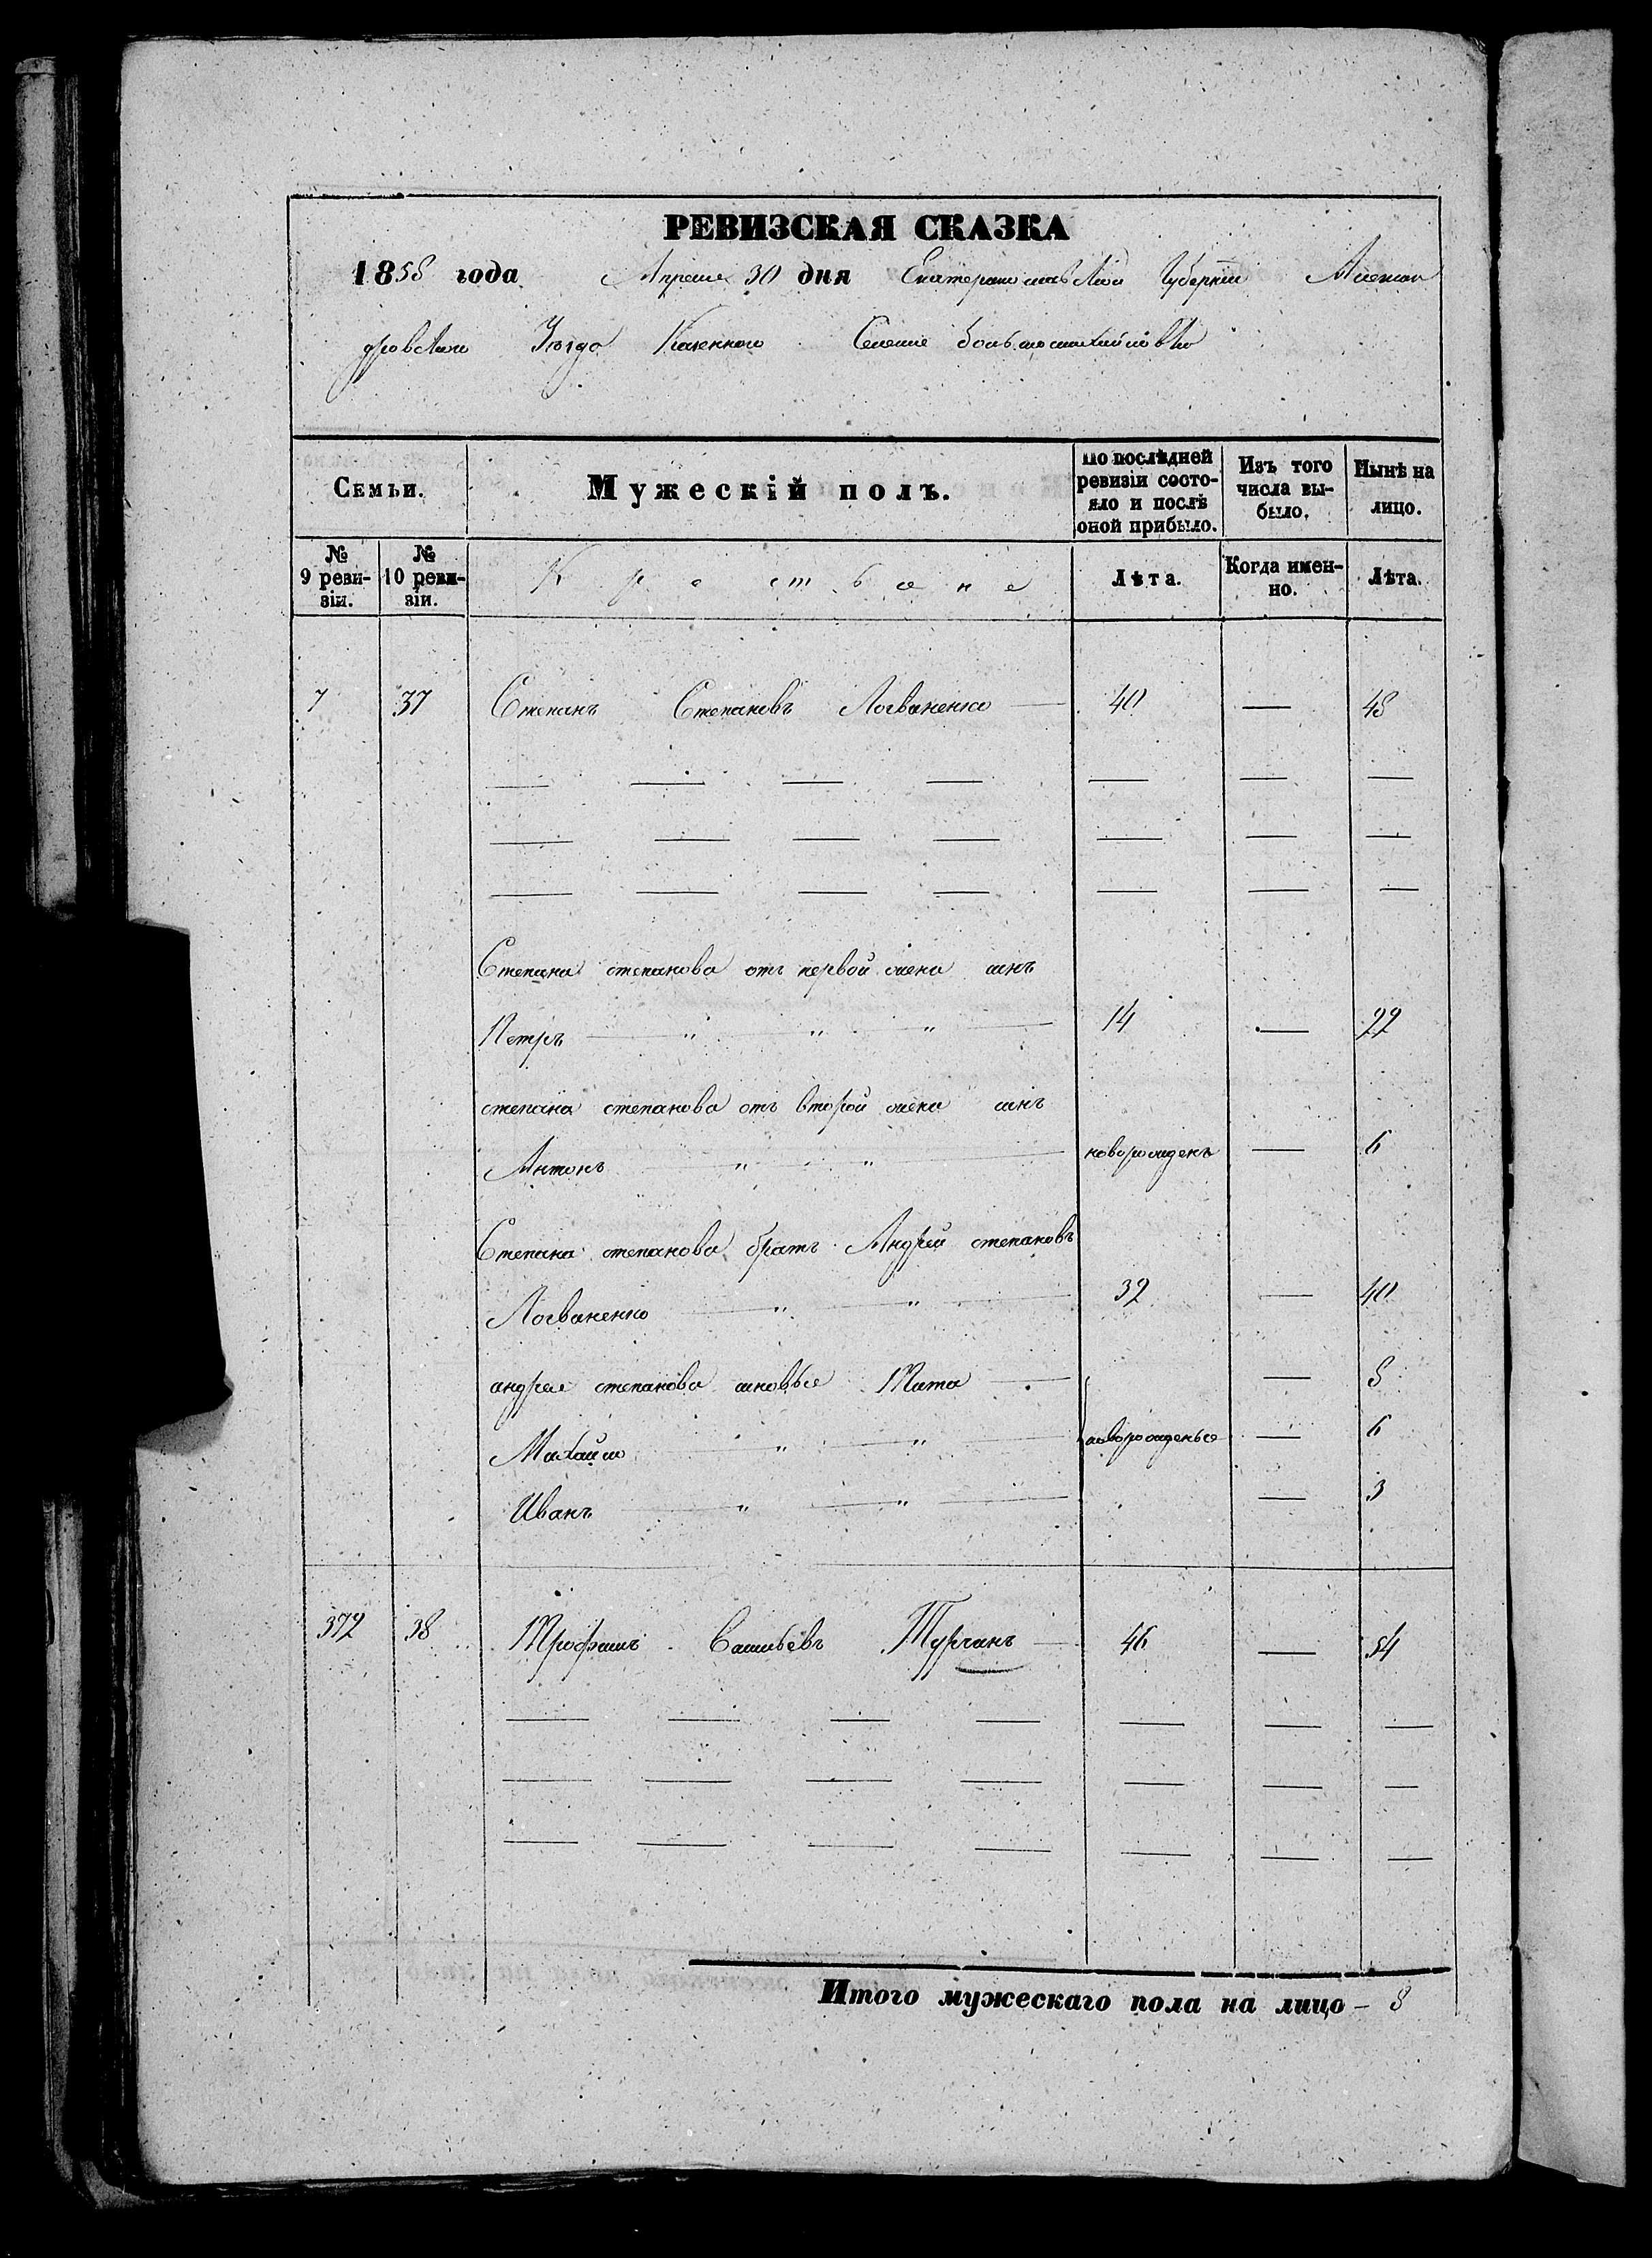 РЕВИЗСКАЯ СКАЗКА
1858 года Апреля 30 дня Екатеринославской Губернии Алексан
дровского Уезда Казенного Селение
Семьи. Мужескій полъ. По послѣдней ревизіи состояло и послѣ оной прибыло. Изъ того числа выбыло. Нынѣ на лицо.
№ 9 ревизіи. № 10 ревизіи. Крестьяне Лѣта. Когда именно. Лѣта.
7 37 Степанъ Степановъ Логвиненко — 40 — 48
— — — — — — —
— — — — — — —
— — — — — — —
Степана степанова отъ первой жены сынъ
Петръ — " — " — " — 14 — 22
степана степанова отъ второй жены сынъ
Антонъ " — " — новорожденъ — 6
Степана степанова братъ Андрей степановъ
Логвиненко — " — " — 32 — 40
андрея степанова сыновья Тита — — 8
Михайло " — " — новорожденые — 6
Иванъ — " — " — — 3
372 38 Трофимъ Васильевъ Турчинъ — 46 — 54
— — — — — — —
— — — — — — —
— — — — — — —
Итого мужескаго пола на лицо — 8